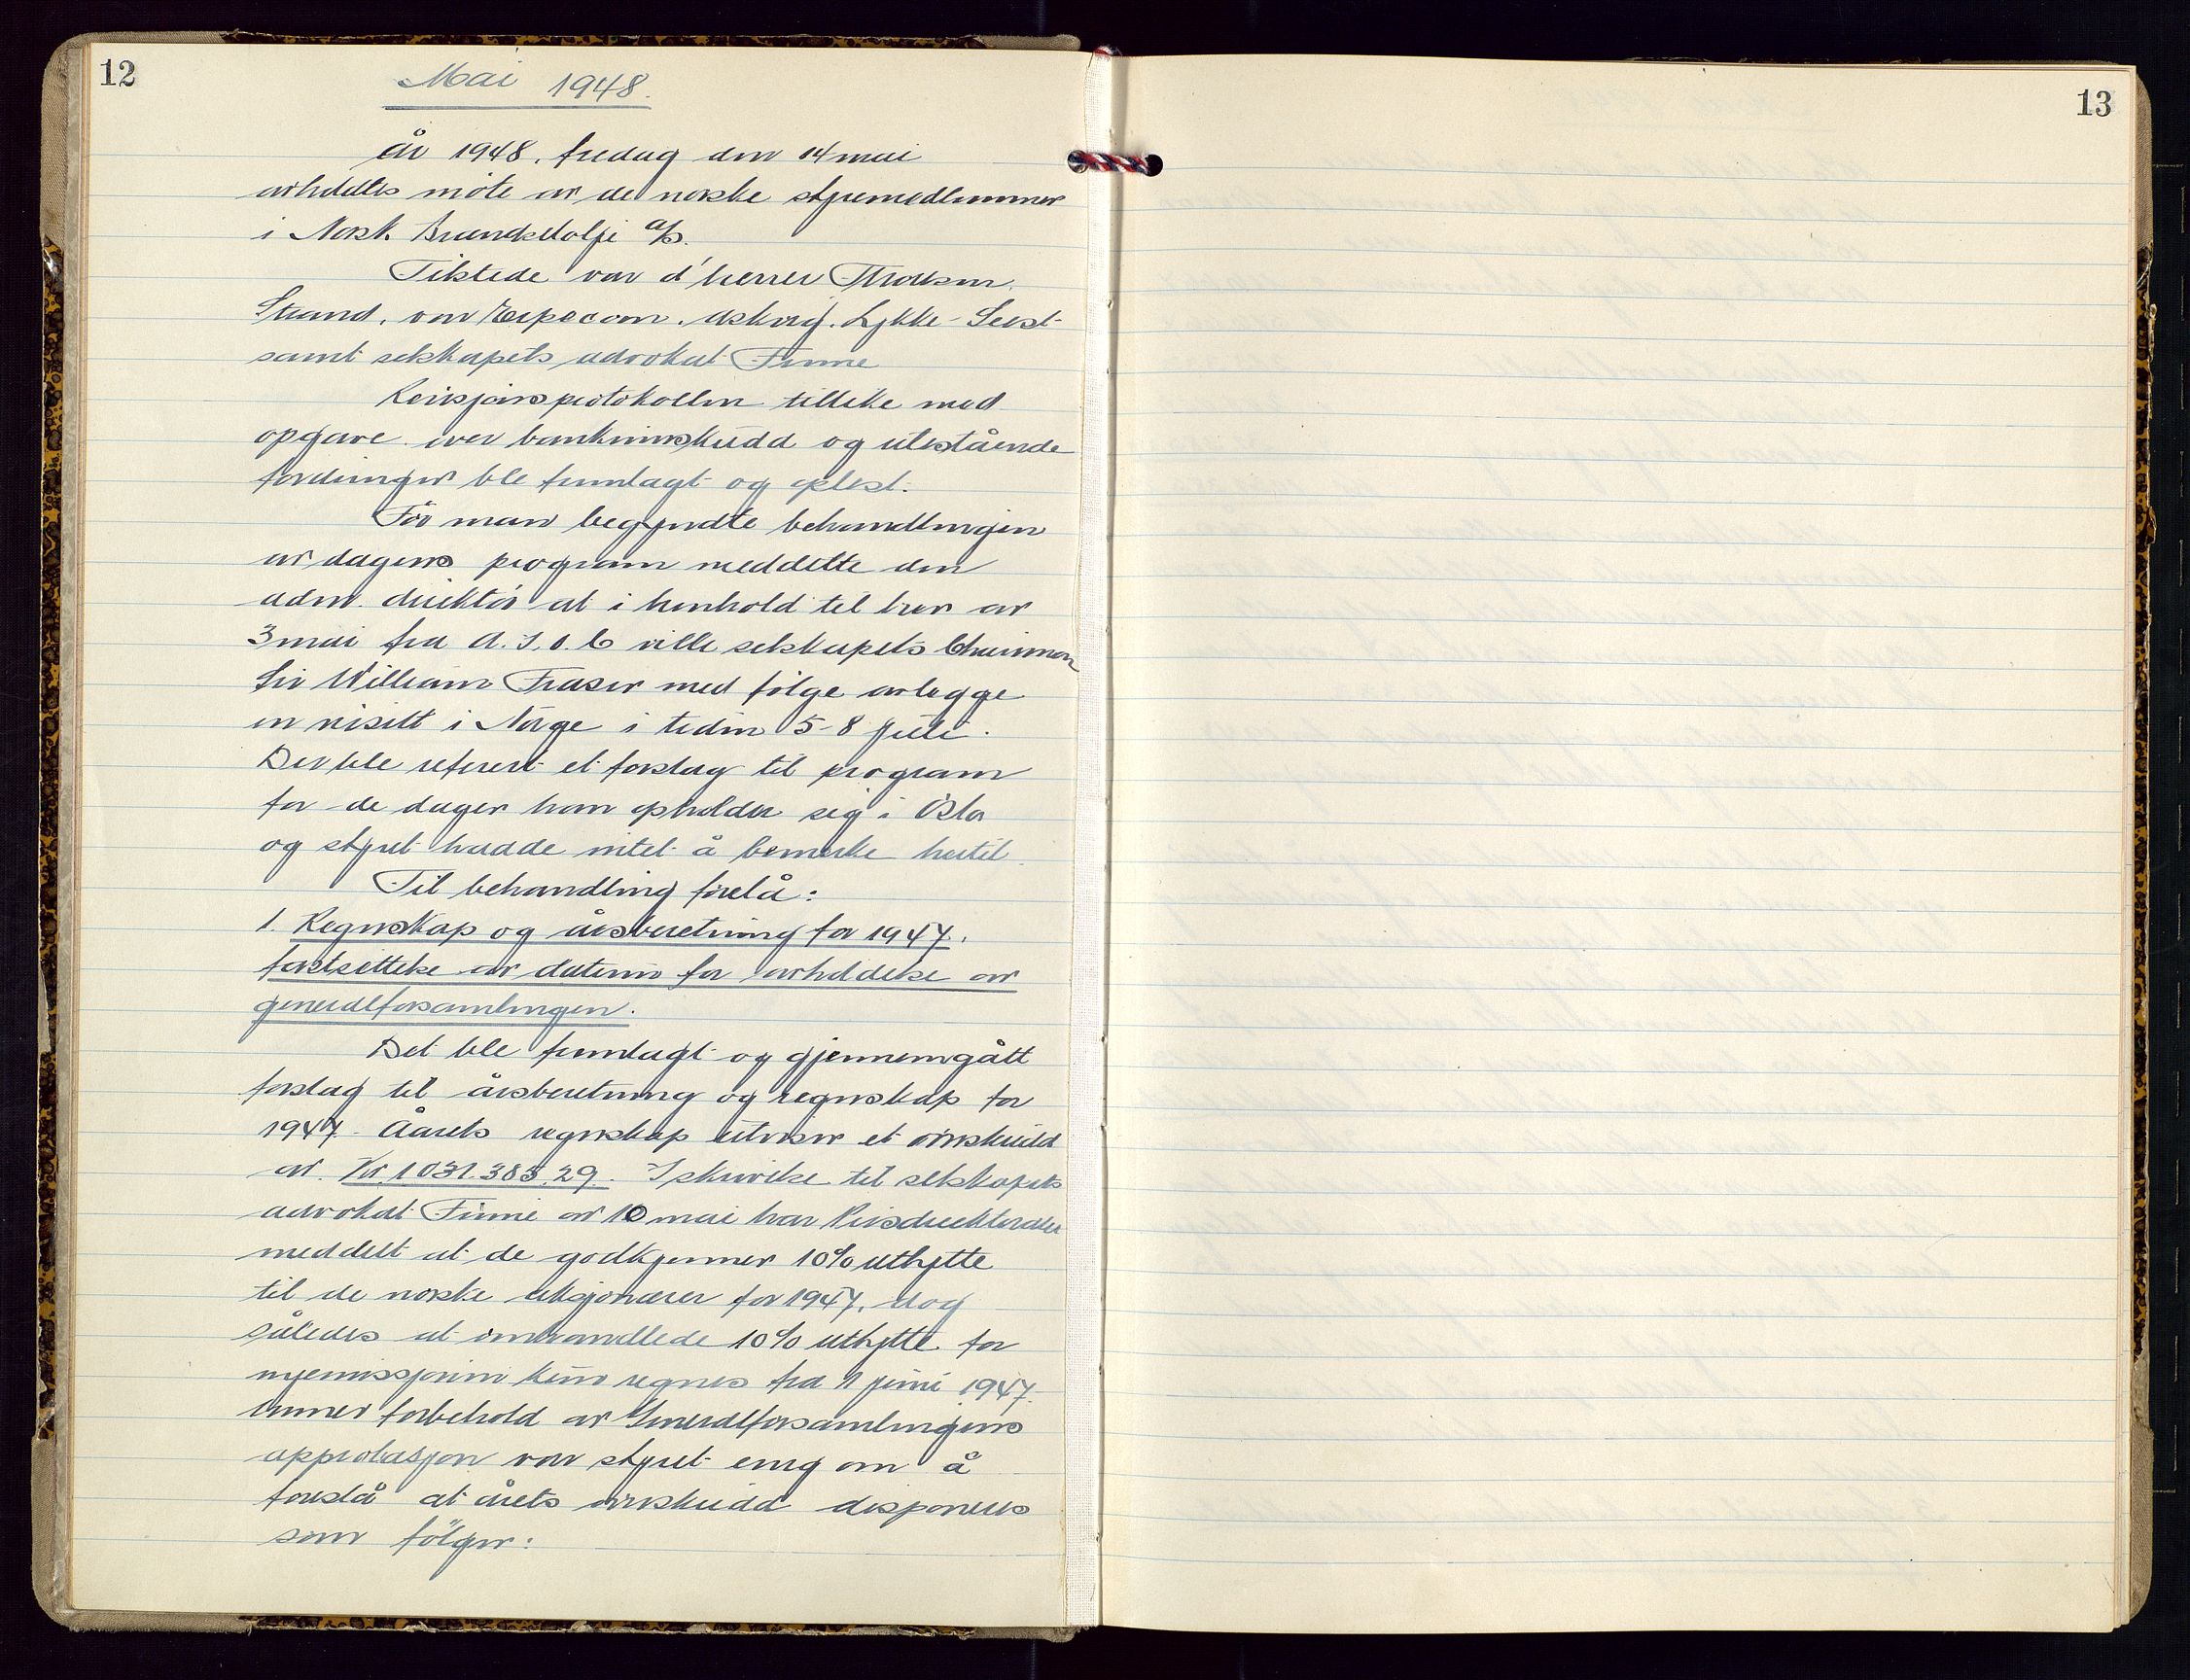 12
Mai 1948.
År 1948, fredag den 14 mai
avholdtes møte av de norske styremedlemmer
i Norsk Brændselolje A/S.
Tilstede var d'herrer Throlsen,
Strand, van Erpecom, Askvig, Lykke-Seest
samt selskapets advokat Finne
Revisjonsprotokollen tillike med
opgave over bankinnskudd og utestående
fordringer ble fremlagt og oplest.
Før man begyndte behandlingen
av dagens program meddelte den
adm. direktør at i henhold til brev av
3 mai fra A.I.O.C ville selskapets Chairman
Sir William Fraser med følge avlegge
en visitt i Norge i tiden 5-8 juli.
Der ble referert et forslag til program
for de dager han opholder sig i Oslo
og styret hadde intet å bemerke hertil.
Til behandling forelå:
1. Regnskap og årsberetning for 1947,
fastsettelse av datum for avholdelse av
generalforsamlingen.
Det ble fremlagt og gjennemgått
forslag til årsberetning og regnskap for
1947. Årets regnskap utviser et overskudd
av Kr. 1.031.385,29. I skrivelse til selskapets
advokat Finne av 10 mai har Prisdirektoratet
meddelt at de godkjenner 10% utbytte
til de norske aksjonærer for 1947, dog
således at omhandlede 10% utbytte for
nyemissjonen kun regnes fra 1 juni 1947.
Under forbehold av Generalforsamlingens
approbasjon var styret enig om å
foreslå at årets overskudd disponeres
som følger:
13